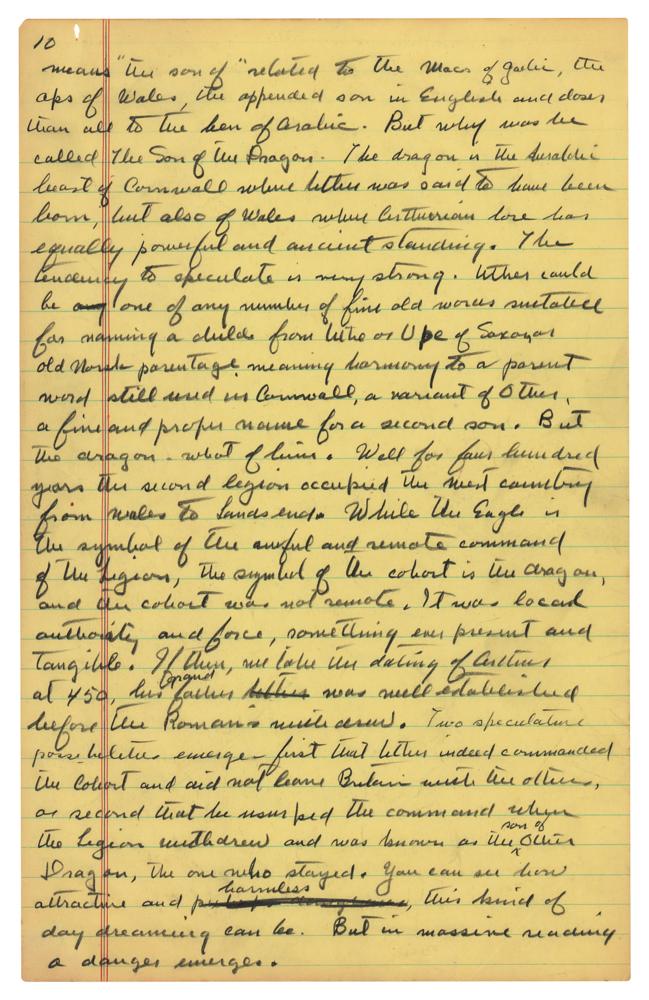 10
means "the son of" related to the Macs of Gaelic, the
aps of Wales, the appended son in English and closer
than all to the ben of Arabic. But why was he
called The Son of the Dragon. The dragon is the heraldic
beast of Cornwall where Uther was said to have been
born, but also of Wales where Arthurian lore has
equally powerful and ancient standing. The
tendency to speculate is very strong. Uther could
be any one of any number of fine old words
for naming a child from Utho or Upe of Saxon or
old Norse parentage meaning harmony to a parent
word still used in Cornwall, a variant of Other,
a fine and proper name for a second son. But
the dragon - what of him. Well for four hundred
years the second legion occupied the west country
from Wales to Lands end. While the Eagle is
the symbol of the awful and remote command
of the Legion, the symbol of the cohort is the dragon,
and the cohort was not remote. It was local
authority and force, something ever present and
tangible. If then, we take the dating of Arthur
at 450, his grand father Uther was well established
before the Romans withdrew. Two speculative
possibilities emerge - first that Uther indeed commanded
the Cohort and did not leave Britain with the others,
or second that he usurped the command when
the Legion withdrew and was known as the son of Other
Dragon, the one who stayed. You can see how
attractive and harmless, this kind of
day dreaming can be. But in massive reading
a danger emerges.